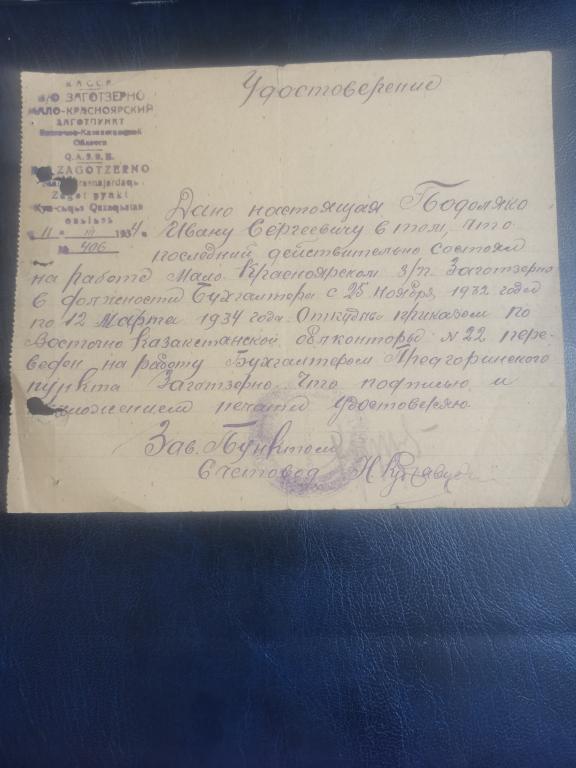 К А С С Р
В/О ЗАГОТЗЕРНО
МАЛО-КРАСНОЯРСКИЙ
ЗАГОТПУНКТ
Восточно-Казахстанской
Области
Q.A.S.S.R.
ZAGOTZERNO
Zagot pynkt
Qazaqıstan
"11" III 1934
№ 406
Удостоверение
Дано настоящая Подоляко
Ивану Сергеевичу в том, что
последний действительно состоял
на работе Мало Красноярском з/п. Заготзерно
в должности Бухгалтера с 25 ноября, 1932 года
по 12 Марта 1934 года. Откуда приказом по
Восточно Казакстанской облконторы № 22 пере-
веден на работу Бухгалтером Предгоринского
пункта Заготзерно. Что подписью и
приложением печати удостоверяю.
Зав. Пунктом
Счетовод